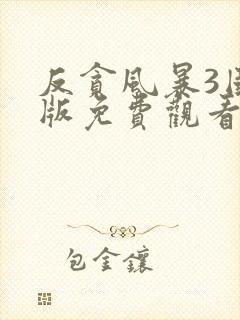 反貪風暴3
版免費觀看
包金鑲